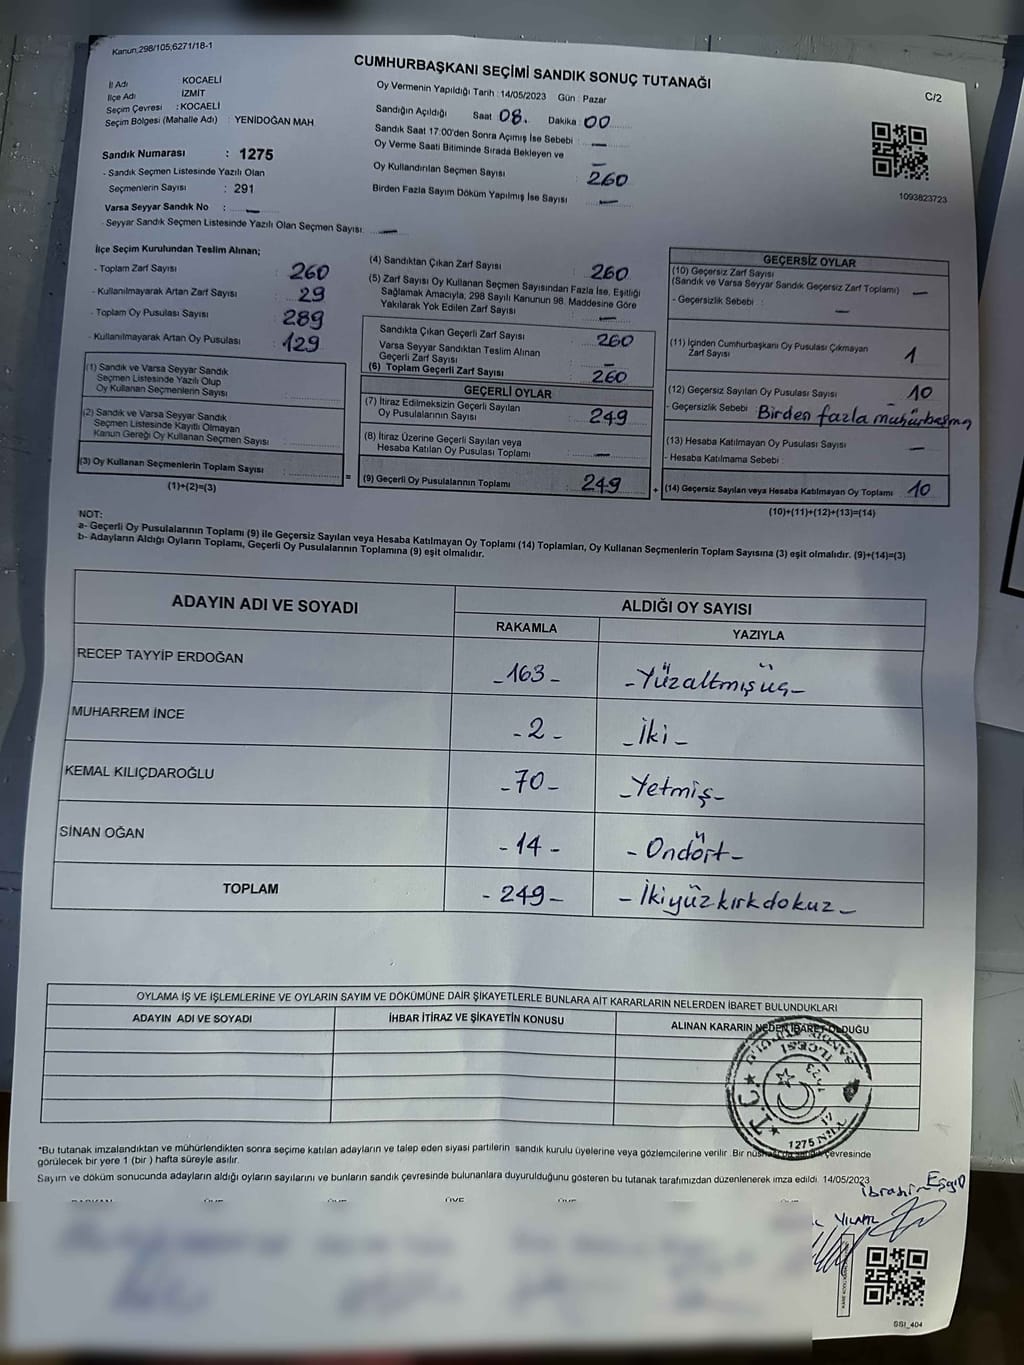 Kanun;298/105;6271/18-1
CUMHURBAŞKANI SEÇİMİ SANDIK SONUÇ TUTANAĞI
C/2
İl Adı KOCAELİ
İlçe Adı İZMİT
Seçim Çevresi : KOCAELİ
Seçim Bölgesi (Mahalle Adı) YENİDOĞAN MAH
Sandık Numarası : 1275
- Sandık Seçmen Listesinde Yazılı Olan
Seçmenlerin Sayısı : 291
Varsa Seyyar Sandık No : —
- Seyyar Sandık Seçmen Listesinde Yazılı Olan Seçmen Sayısı: —
Oy Vermenin Yapıldığı Tarih : 14/05/2023 Gün : Pazar
Sandığın Açıldığı Saat 08. Dakika 00
Sandık Saat 17:00'den Sonra Açımış İse Sebebi : —
Oy Verme Saati Bitiminde Sırada Bekleyen ve —
Oy Kullandırılan Seçmen Sayısı : 260
Birden Fazla Sayım Döküm Yapılmış İse Sayısı —
1093823723
İlçe Seçim Kurulundan Teslim Alınan;
- Toplam Zarf Sayısı : 260
- Kullanılmayarak Artan Zarf Sayısı : 29
- Toplam Oy Pusulası Sayısı : 289
- Kullanılmayarak Artan Oy Pusulası : 129
(1) Sandık ve Varsa Seyyar Sandık
Seçmen Listesinde Yazılı Olup
Oy Kullanan Seçmenlerin Sayısı :
(2) Sandık ve Varsa Seyyar Sandık
Seçmen Listesinde Kayıtlı Olmayan
Kanun Gereği Oy Kullanan Seçmen Sayısı :
(3) Oy Kullanan Seçmenlerin Toplam Sayısı :
(1)+(2)=(3)
=
(4) Sandıktan Çıkan Zarf Sayısı : 260
(5) Zarf Sayısı Oy Kullanan Seçmen Sayısından Fazla İse, Eşitliği
Sağlamak Amacıyla, 298 Sayılı Kanunun 98. Maddesine Göre
Yakılarak Yok Edilen Zarf Sayısı : —
Sandıkta Çıkan Geçerli Zarf Sayısı : 260
Varsa Seyyar Sandıktan Teslim Alınan
Geçerli Zarf Sayısı : —
(6) Toplam Geçerli Zarf Sayısı : 260
GEÇERLİ OYLAR
(7) İtiraz Edilmeksizin Geçerli Sayılan
Oy Pusulalarının Sayısı : 249
(8) İtiraz Üzerine Geçerli Sayılan veya
Hesaba Katılan Oy Pusulası Toplamı : —
(9) Geçerli Oy Pusulalarının Toplamı : 249
+
GEÇERSİZ OYLAR
(10) Geçersiz Zarf Sayısı
(Sandık ve Varsa Seyyar Sandık Geçersiz Zarf Toplamı) —
- Geçersizlik Sebebi : —
(11) İçinden Cumhurbaşkanı Oy Pusulası Çıkmayan
Zarf Sayısı 1
(12) Geçersiz Sayılan Oy Pusulası Sayısı 10
- Geçersizlik Sebebi Birden fazla mühürbasma
(13) Hesaba Katılmayan Oy Pusulası Sayısı —
- Hesaba Katılmama Sebebi :
(14) Geçersiz Sayılan veya Hesaba Katılmayan Oy Toplamı 10
(10)+(11)+(12)+(13)=(14)
NOT:
a- Geçerli Oy Pusulalarının Toplamı (9) ile Geçersiz Sayılan veya Hesaba Katılmayan Oy Toplamı (14) Toplamları, Oy Kullanan Seçmenlerin Toplam Sayısına (3) eşit olmalıdır. (9)+(14)=(3)
b- Adayların Aldığı Oyların Toplamı, Geçerli Oy Pusulalarının Toplamına (9) eşit olmalıdır.
ADAYIN ADI VE SOYADI ALDIĞI OY SAYISI
RAKAMLA YAZIYLA
RECEP TAYYİP ERDOĞAN -163- -Yüzaltmışüç-
MUHARREM İNCE -2- -İki-
KEMAL KILIÇDAROĞLU -70- -Yetmiş-
SİNAN OĞAN -14- -Ondört-
TOPLAM -249- -İkiyüzkırkdokuz-
OYLAMA İŞ VE İŞLEMLERİNE VE OYLARIN SAYIM VE DÖKÜMÜNE DAİR ŞİKAYETLERLE BUNLARA AİT KARARLARIN NELERDEN İBARET BULUNDUKLARI
ADAYIN ADI VE SOYADI İHBAR İTİRAZ VE ŞİKAYETİN KONUSU ALINAN KARARIN NEDEN İBARET OLDUĞU
T.C.
1275 NOLU
*Bu tutanak imzalandıktan ve mühürlendikten sonra seçime katılan adayların ve talep eden siyasi partilerin sandık kurulu üyelerine veya gözlemcilerine verilir. Bir nüshası da sandık çevresinde
görülecek bir yere 1 (bir) hafta süreyle asılır.
Sayım ve döküm sonucunda adayların aldığı oyların sayılarını ve bunların sandık çevresinde bulunanlara duyurulduğunu gösteren bu tutanak tarafımızdan düzenlenerek imza edildi. 14/05/2023
BAŞKAN ÜYE ÜYE ÜYE
SSI_404